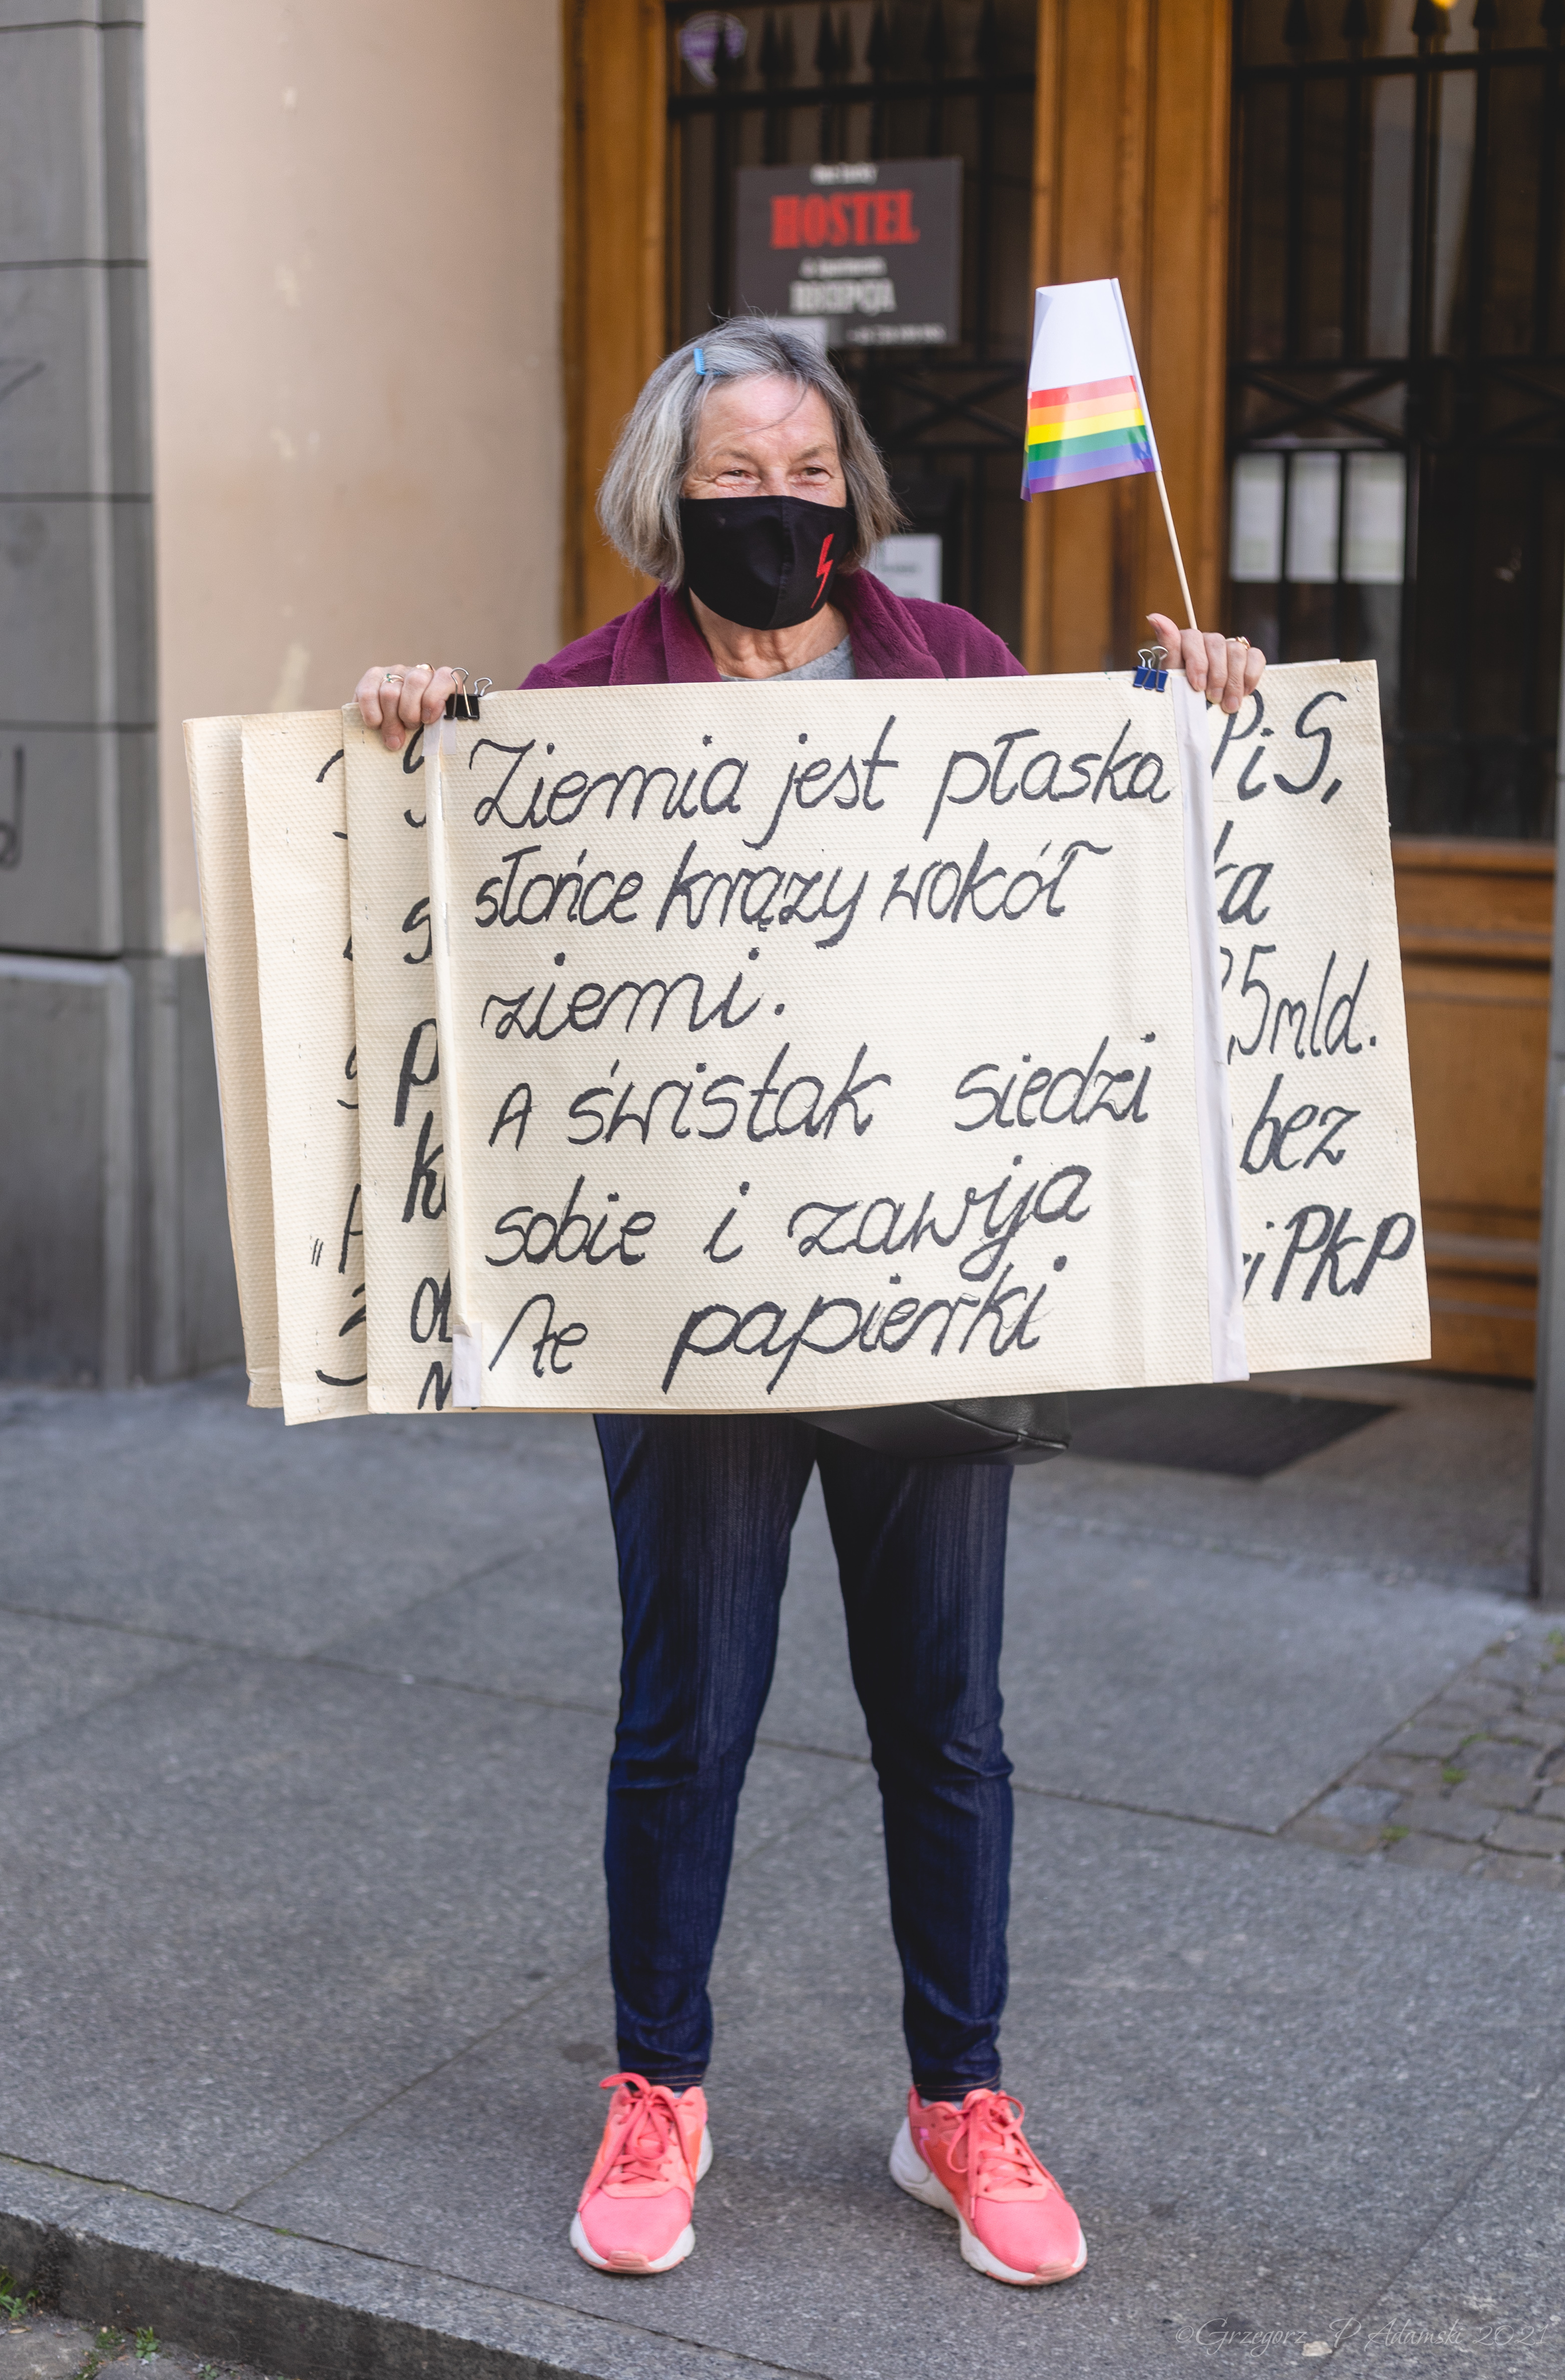 HOSTEL
RECEPCJA
Ziemia jest płaska
słońce krąży wokół
ziemi.
A świstak siedzi
sobie i zawija
te papierki
PiS,
ka
5mld.
bez
i PKP
©Grzegorz P Adamski 2021